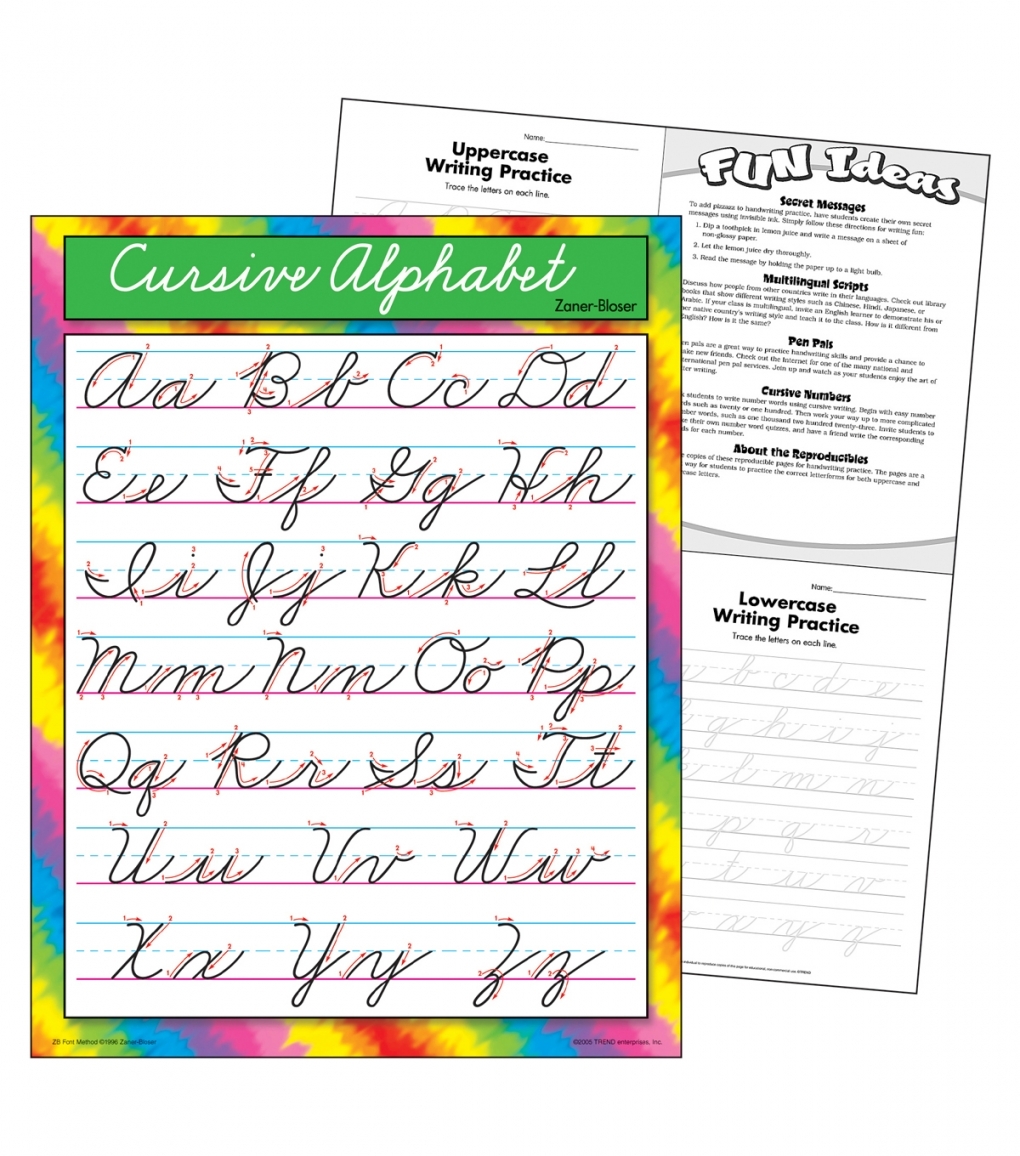 Cursive Alphabet
Zaner-Bloser
Aa Bb Cc Dd
Ee Ff Gg Hh
Ii Jj Kk Ll
Mm Nn Oo Pp
Qq Rr Ss Tt
Uu Vv Ww
Xx Yy Zz
ZB Font Method ©1996 Zaner-Bloser
©2005 TREND enterprises, Inc.
Name:
Uppercase
Writing Practice
Trace the letters on each line.
FUN Ideas
Secret Messages
To add pizzazz to handwriting practice, have students create their own secret
messages using invisible ink. Simply follow these directions for writing fun:
1. Dip a toothpick in lemon juice and write a message on a sheet of
non-glossy paper.
2. Let the lemon juice dry thoroughly.
3. Read the message by holding the paper up to a light bulb.
Multilingual Scripts
Discuss how people from other countries write in their languages. Check out library
books that show different writing styles such as Chinese, Hindi, Japanese, or
Arabic. If your class is multilingual, invite an English learner to demonstrate his or
her native country's writing style and teach it to the class. How is it different from
English? How is it the same?
Pen Pals
pals are a great way to practice handwriting skills and provide a chance to
new friends. Check out the Internet for one of the many national and
pen pal services. Join up and watch as your students enjoy the art of
writing.
Cursive Numbers
students to write number words using cursive writing. Begin with easy number
such as twenty or one hundred. Then work your way up to more complicated
words, such as one thousand two hundred twenty-three. Invite students to
their own number word quizzes, and have a friend write the corresponding
for each number.
About the Reproducibles
copies of these reproducible pages for handwriting practice. The pages are a
way for students to practice the correct letterforms for both uppercase and
letters.
Name:
Lowercase
Writing Practice
Trace the letters on each line.
b c d e
g h i j
l m n
p q r
t u v
x y z